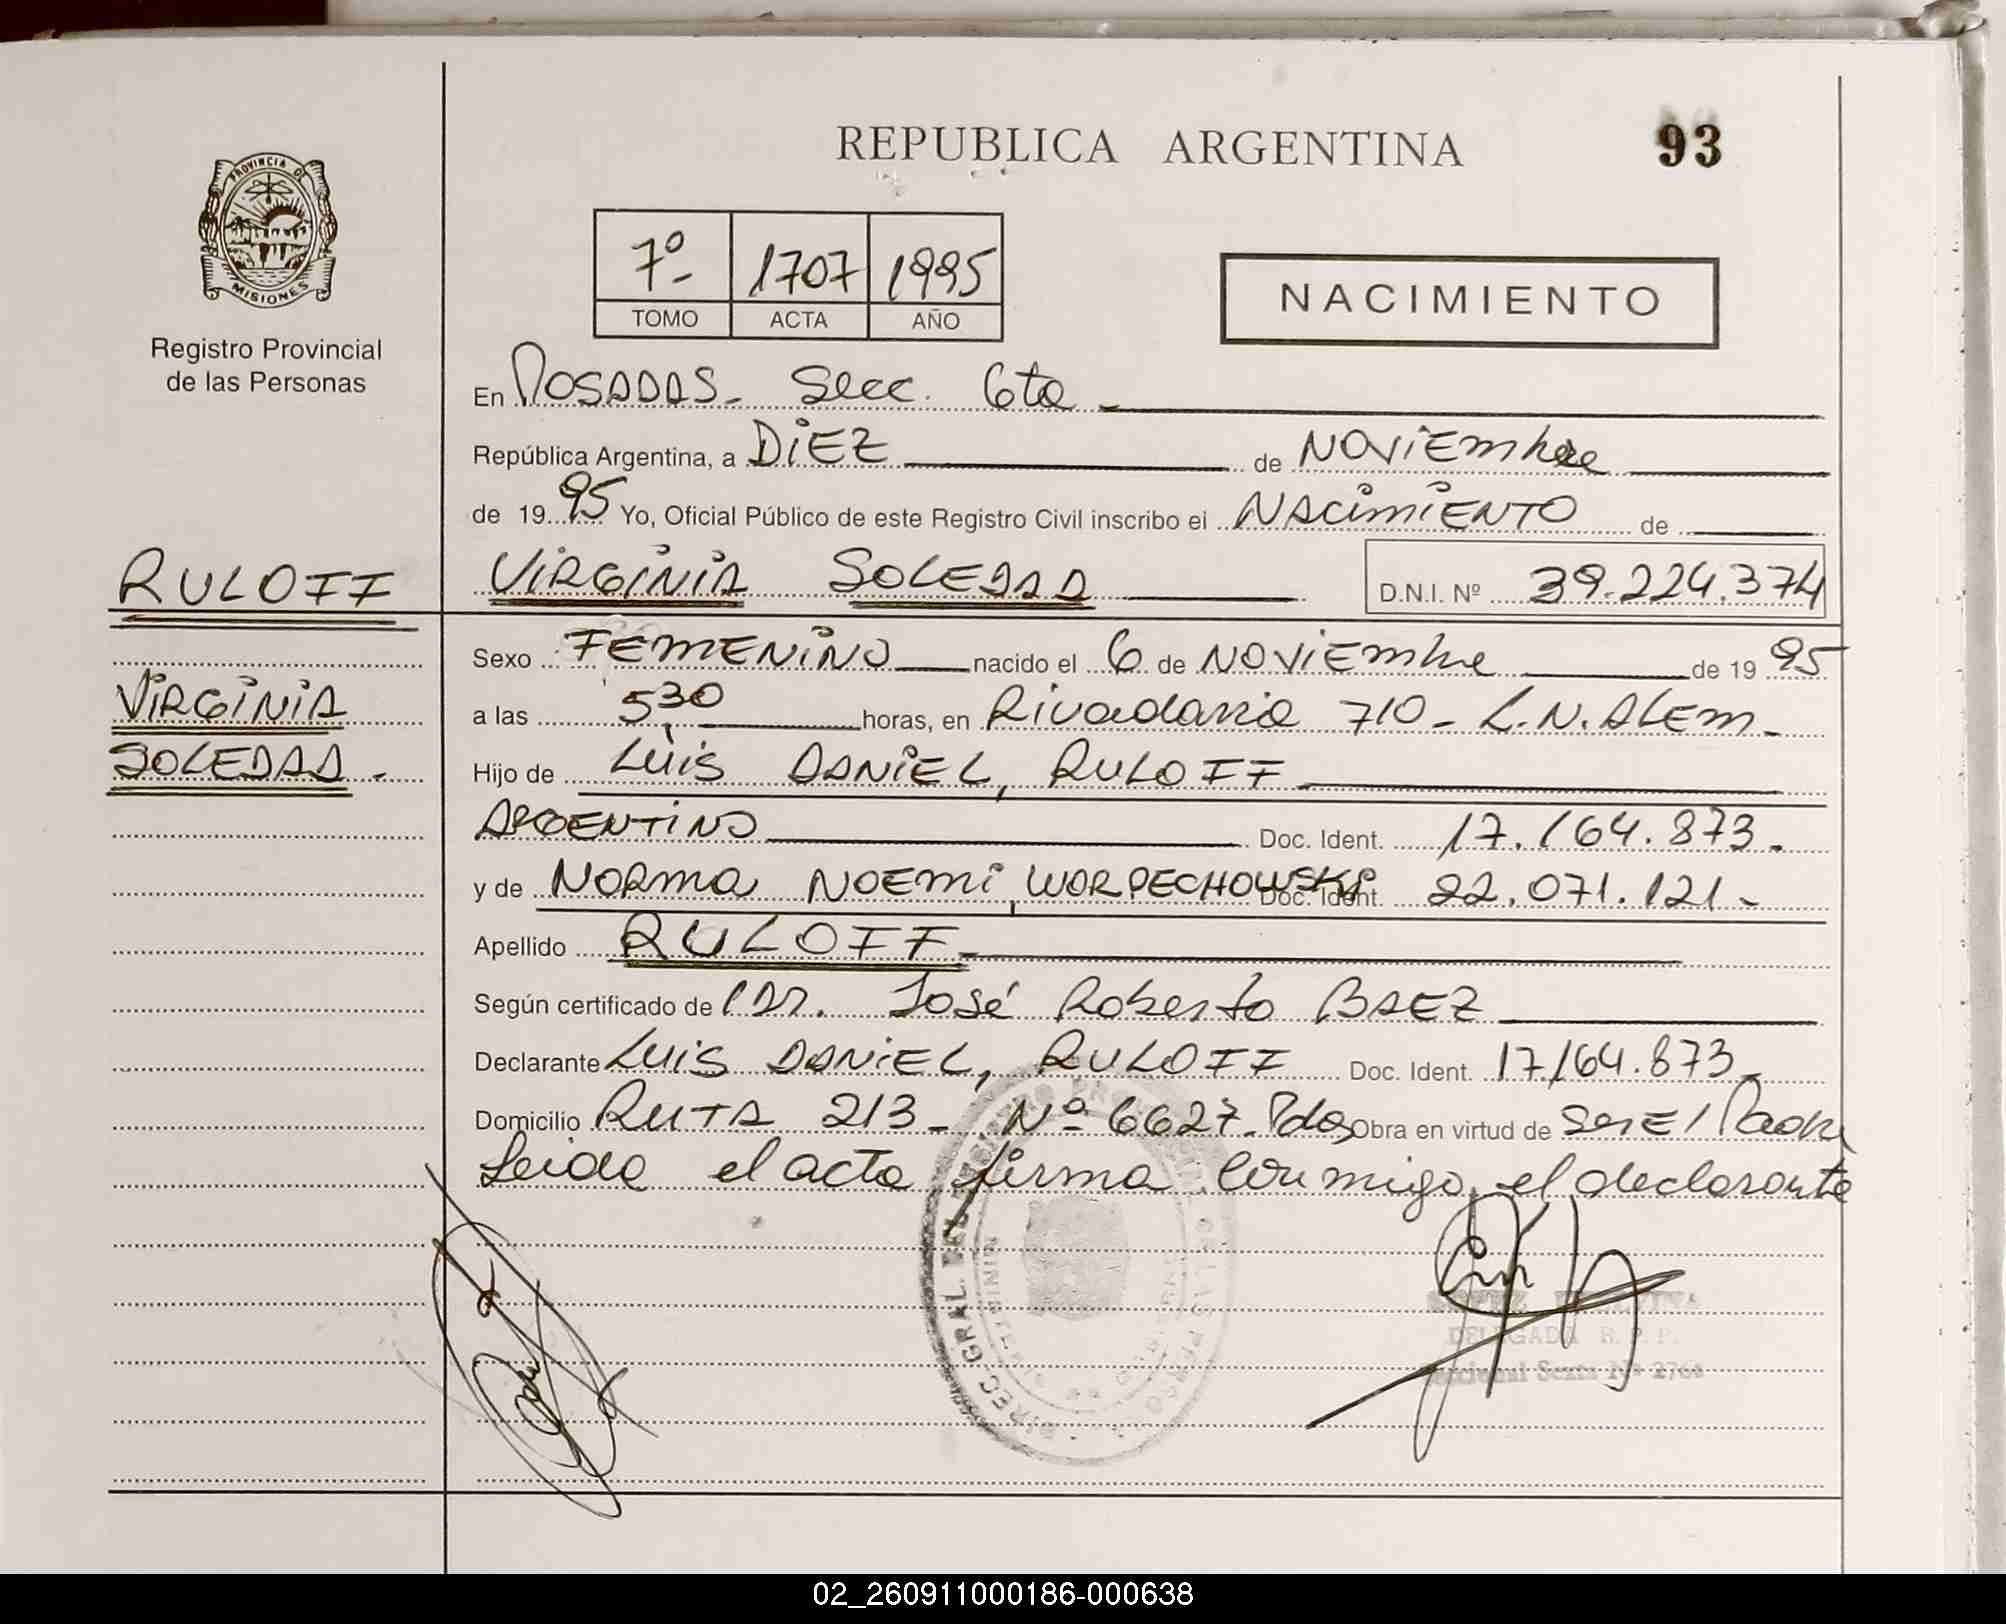 REPUBLICA ARGENTINA
93
PROVINCIA DE
MISIONES
Registro Provincial
de las Personas
7º 1707 1995
TOMO ACTA AÑO
NACIMIENTO
En POSADAS- Secc. 6ta
República Argentina, a DIEZ de NOVIEMbre
de 1995 Yo, Oficial Público de este Registro Civil inscribo el NACIMIENTO de
RULOFF
VIRGINIA SOLEDAD D.N.I. Nº 39.224.374
VIRGINIA
SOLEDAD.
Sexo FEMENINO nacido el 6 de NOVIEMbre de 1995
a las 530 horas, en Rivadavia 710- L.N.ALEM-
Hijo de LUIS DANIEL, RULOFF
ARGENTINO Doc. Ident. 17.164.873-
y de NORMA NOEMI, WORPECHOWSKI Doc. Ident. 22.071.121-
Apellido RULOFF
Según certificado de Dr. José Roberto BAEZ
Declarante LUIS DANIEL, RULOFF Doc. Ident. 17164.873-
Domicilio RUTA 213- Nº 6627-Pdas Obra en virtud de SER El Padre
Leida el acta firma conmigo, el declarante
DIREC. GRAL. DEL
DELEGADA R. P. P.
Seccional Sexta Nº
02_260911000186-000638